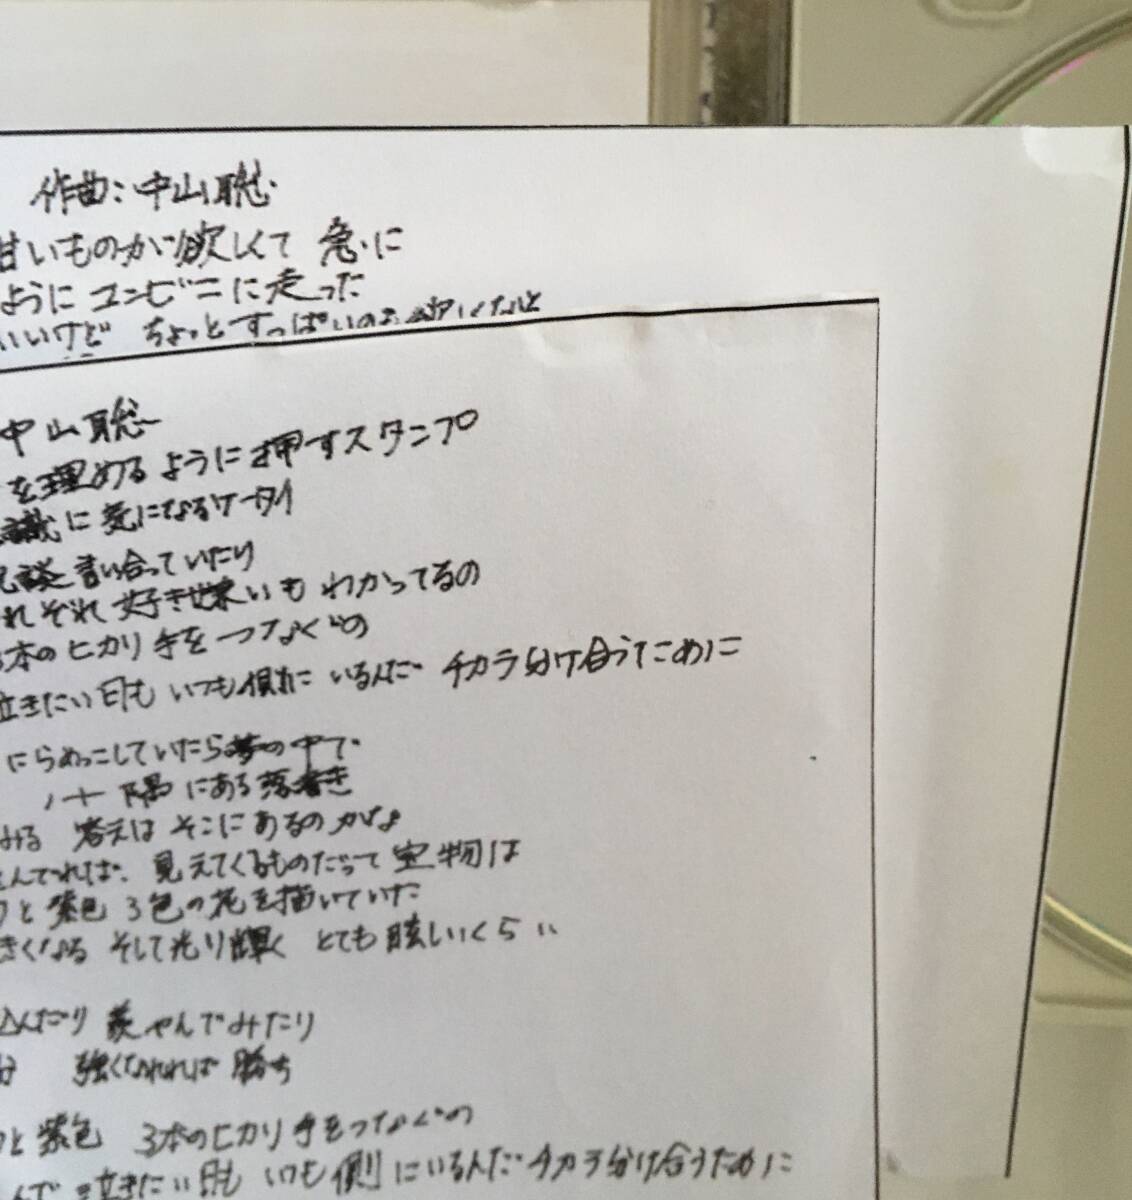 作曲:中山聡
甘いものが欲しくて 急に
ように コンビニに走った
いいけど ちょっとすっぱいのも欲しくなると
中山聡
を埋めるように押すスタンプ
識に気になるケータイ
談言い合っていたり
れぞれ好き嫌いもわかってるの
3本のヒカリ手をつなぐの
泣きたい日も いつも側に いるんだ チカラ分け合うために
にらめっこしていたら夢の中で
ノート隅にある落書き
みる 答えは そこにあるのかな
んでれば 見えてくるものだって宝物は
と紫色 3色の花を描いていた
きくなる そして光り輝く とても眩しいくらい
込んだり 羨やんでみたり
分 強くなれれば 勝ち
と紫色 3本のヒカリ 手をつなぐの
んで 泣きたい日も いつも側にいるんだ チカラ分け合うために